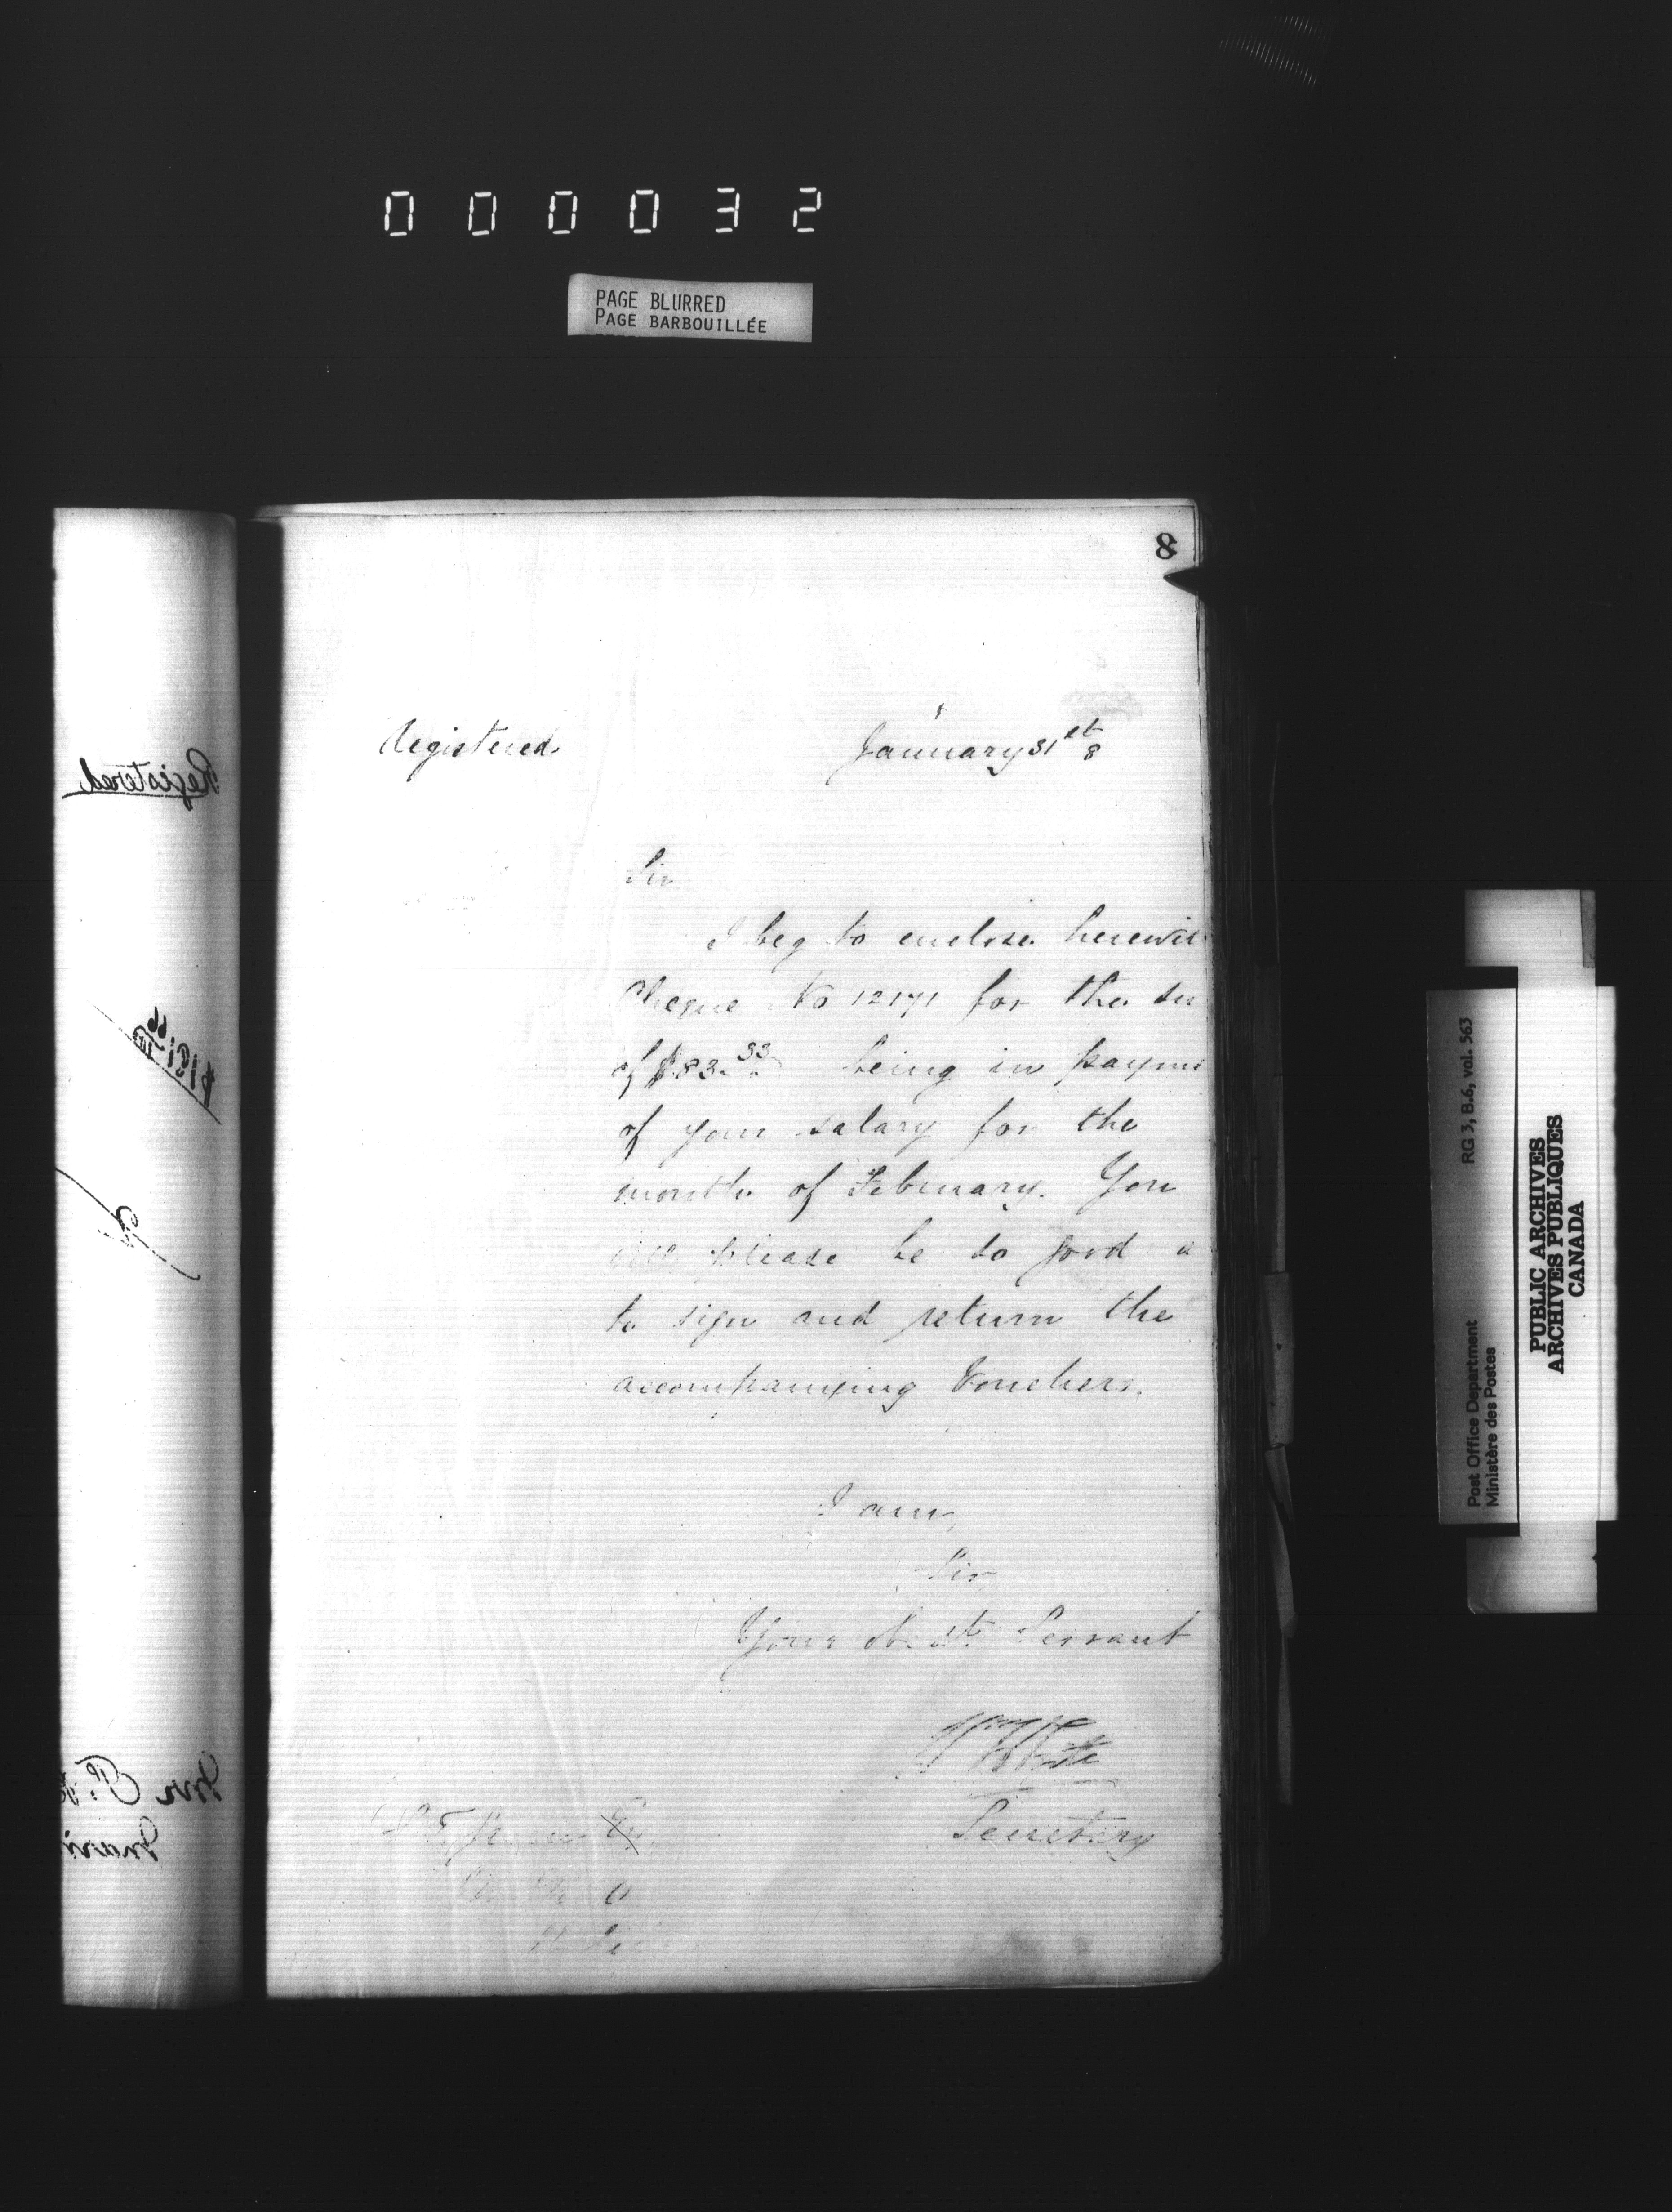 000032
PAGE BLURRED
PAGE BARBOUILLÉE
8
Registered
January 31st 8
Sir
I beg to enclose herewit
Cheque No 12171 for the su
of $83.33 being in payme
of your salary for the
month of February. You
will please be so good a
to sign and return the
accompanying Vouchers.
I am,
Sir,
Your obedt. Servant
Wm White
Secretary
Esq
Registered
RG 3, B.6, vol. 563
Post Office Department
Ministère des Postes
PUBLIC ARCHIVES
ARCHIVES PUBLIQUES
CANADA